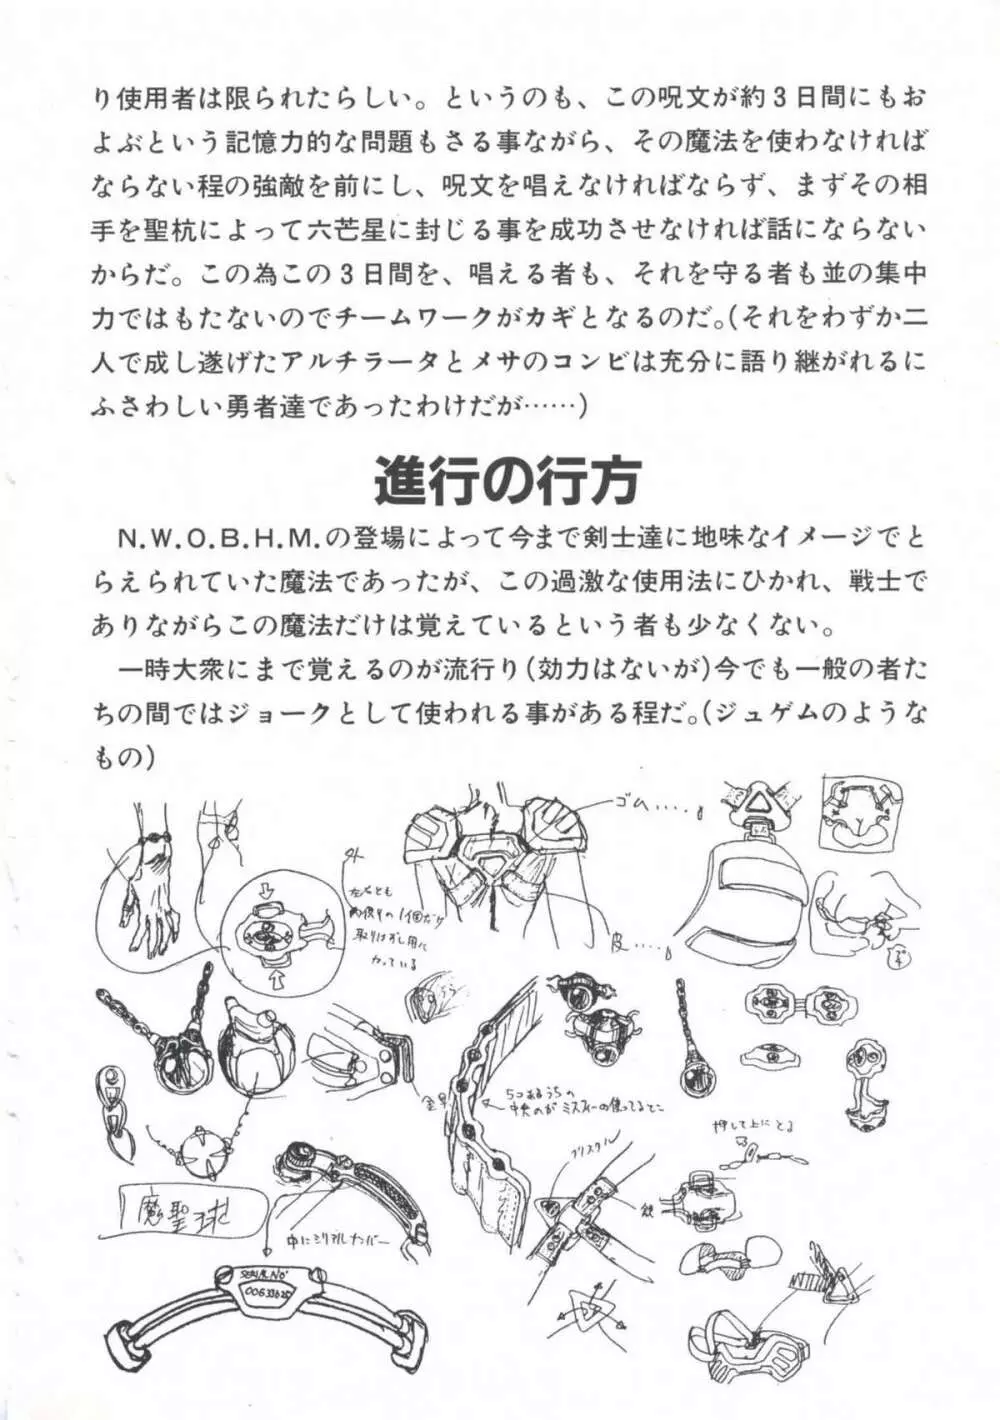 り使用者は限られたらしい。というのも、この呪文が約3日間にもお
よぶという記憶力的な問題もさる事ながら、その魔法を使わなければ
ならない程の強敵を前にし、呪文を唱えなければならず、まずその相
手を聖杭によって六芒星に封じる事を成功させなければ話にならない
からだ。この為この3日間を、唱える者も、それを守る者も並の集中
力ではもたないのでチームワークがカギとなるのだ。(それをわずか二
人で成し遂げたアルチラータとメサのコンビは充分に語り継がれるに
ふさわしい勇者達であったわけだが……)
進行の行方
N.W.O.B.H.M.の登場によって今まで剣士達に地味なイメージでと
らえられていた魔法であったが、この過激な使用法にひかれ、戦士で
ありながらこの魔法だけは覚えているという者も少なくない。
一時大衆にまで覚えるのが流行り(効力はないが)今でも一般の者た
ちの間ではジョークとして使われる事がある程だ。(ジュゲムのような
もの)
ゴム....
外
左右とも
1個だけ
取りはずし用に
なっている
皮....
うら
金具
5つあるうちの
中央のがミスティーの使ってるとこ
クリスタル
押して上にとる
魔聖球
中にシリアルナンバー
鉄
SERIAL No
00633625